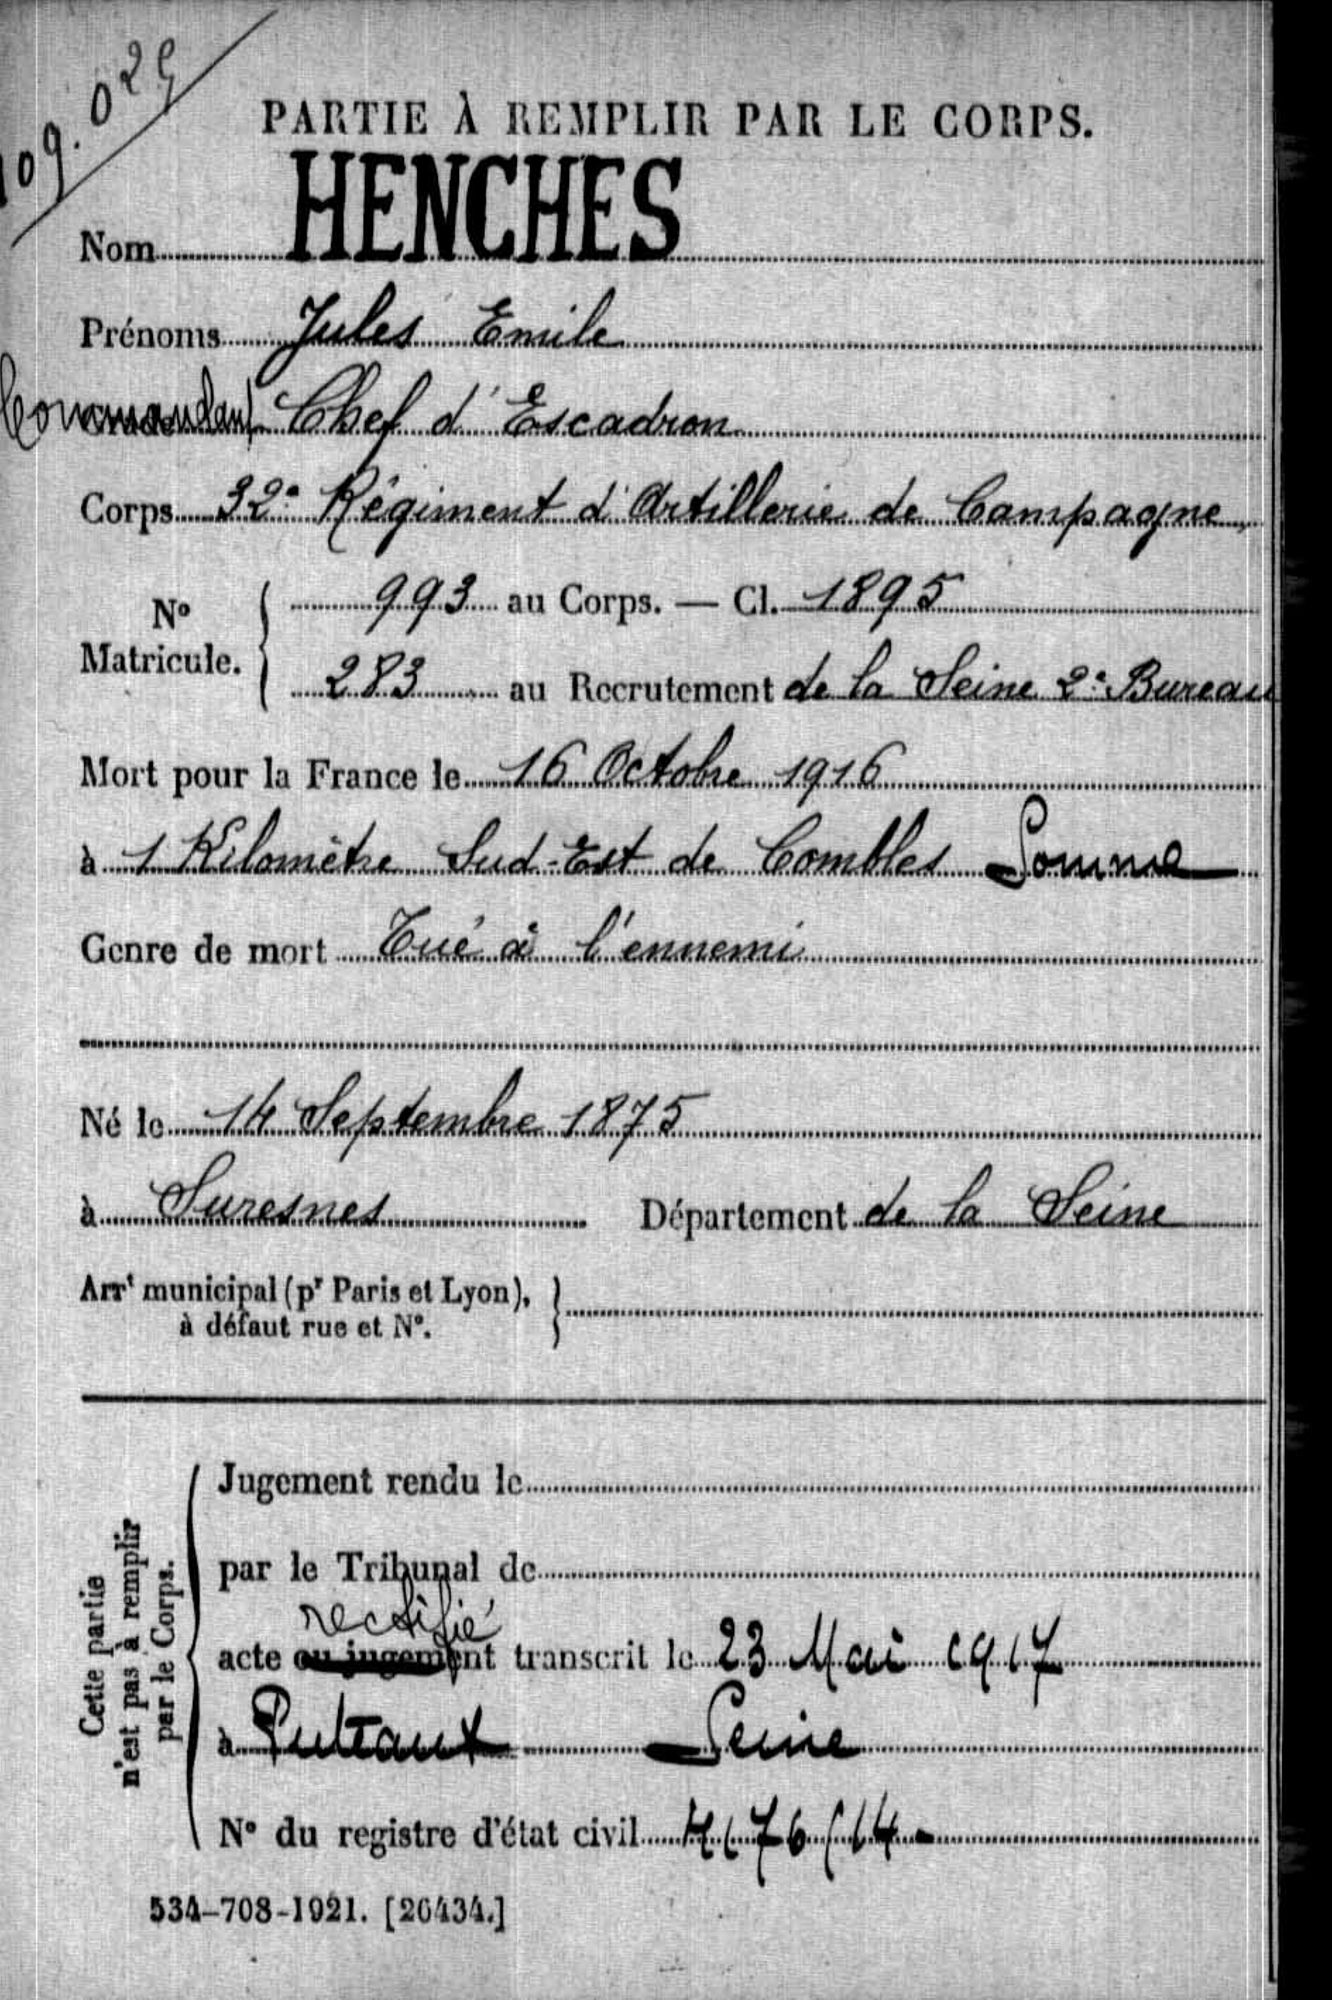 109.029
PARTIE À REMPLIR PAR LE CORPS.
Nom HENCHES
Prénoms Jules Emile
Commandant Chef d'Escadron
Corps 32e Régiment d'Artillerie de Campagne
No Matricule. 993 au Corps. — Cl. 1895
283 au Recrutement de la Seine 2e Bureau
Mort pour la France le 16 Octobre 1916
à 1 Kilomètre Sud-Est de Combles Somme
Genre de mort Tué à l'ennemi
Né le 14 Septembre 1875
à Suresnes Département de la Seine
Arrt municipal (pr Paris et Lyon),
à défaut rue et No.
Cette partie
n'est pas à remplir
par le Corps.
Jugement rendu le
par le Tribunal de
rectifié
acte ou jugement transcrit le 23 Mai 1917
à Puteaux Seine
No du registre d'état civil
534-708-1921. [26434.]